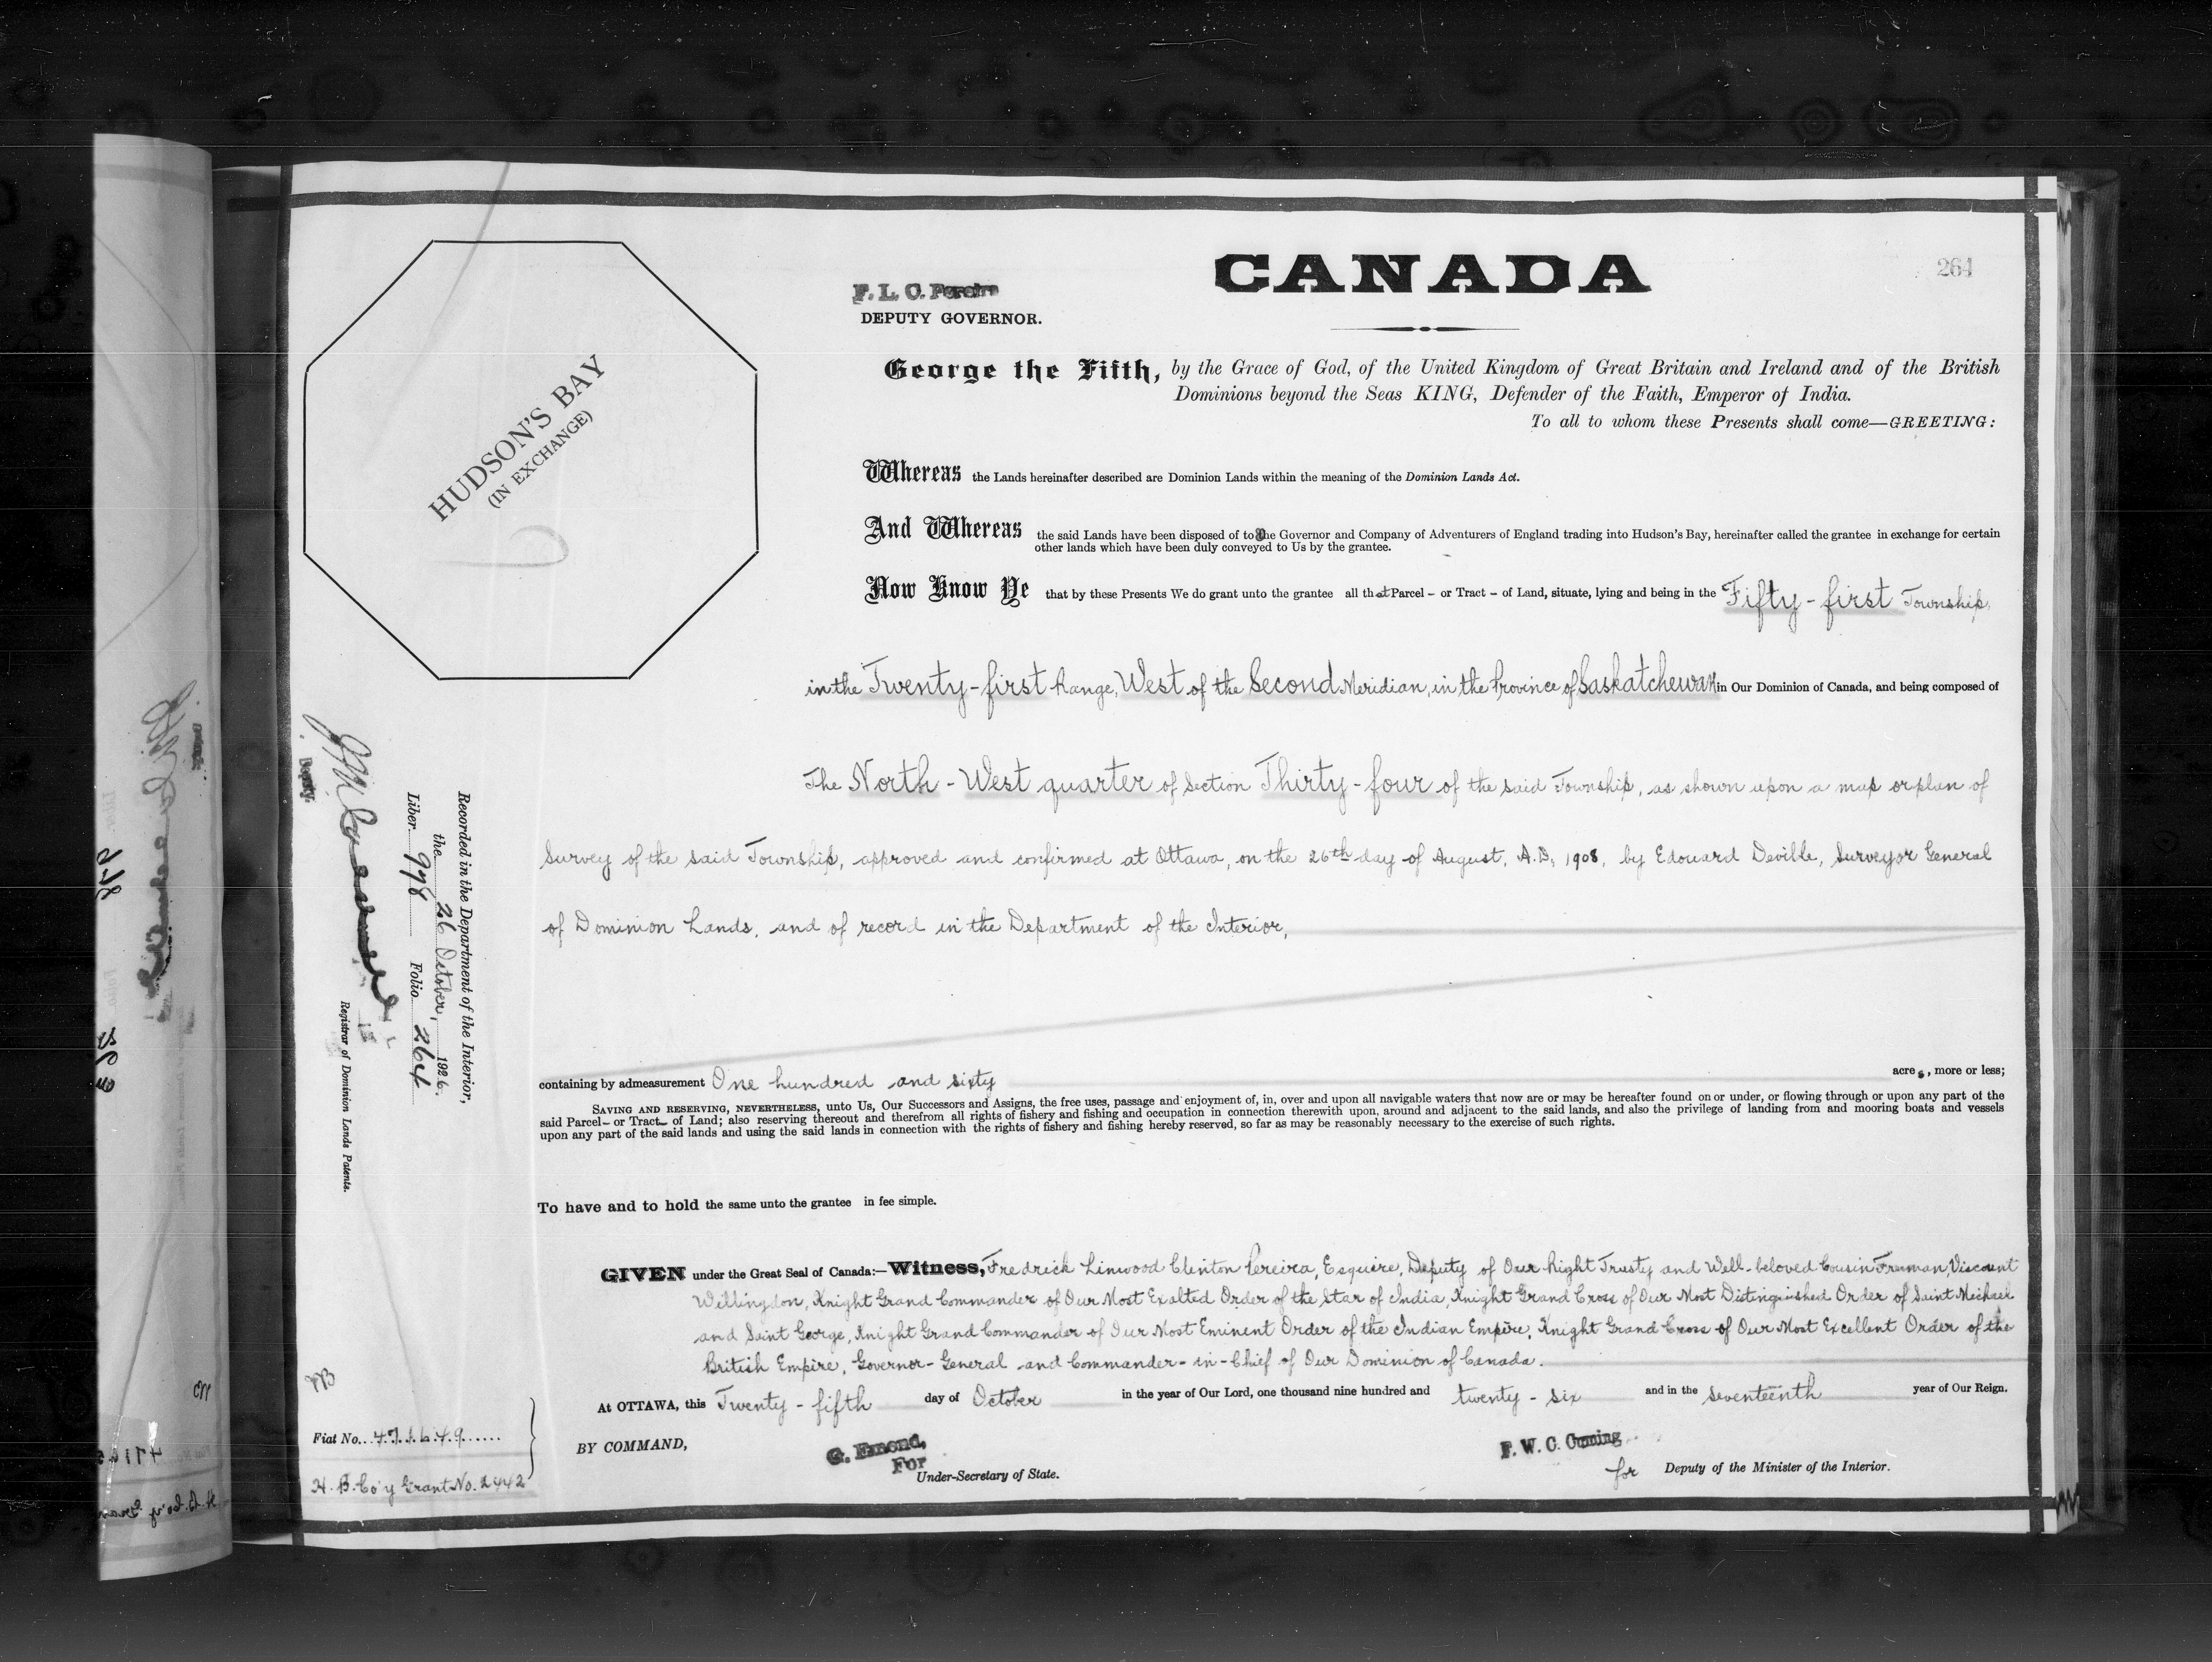 264
CANADA
F. L. C. Pereira
DEPUTY GOVERNOR.
George the Fifth, by the Grace of God, of the United Kingdom of Great Britain and Ireland and of the British
Dominions beyond the Seas KING, Defender of the Faith, Emperor of India.
To all to whom these Presents shall come—GREETING:
HUDSON'S BAY
(IN EXCHANGE)
Whereas the Lands hereinafter described are Dominion Lands within the meaning of the Dominion Lands Act.
And Whereas the said Lands have been disposed of to the Governor and Company of Adventurers of England trading into Hudson's Bay, hereinafter called the grantee in exchange for certain
other lands which have been duly conveyed to Us by the grantee.
Now Know Ye that by these Presents We do grant unto the grantee all that Parcel – or Tract – of Land, situate, lying and being in the Fifty-first Township,
in the Twenty-first Range, West of the Second Meridian, in the Province of Saskatchewan in Our Dominion of Canada, and being composed of
The North-West quarter of Section Thirty-four of the said Township, as shown upon a map or plan of
Survey of the said Township, approved and confirmed at Ottawa, on the 26th day of August, A.D. 1908, by Edouard Deville, Surveyor General
of Dominion Lands, and of record in the Department of the Interior,
containing by admeasurement One hundred and sixty acres, more or less;
SAVING AND RESERVING, NEVERTHELESS, unto Us, Our Successors and Assigns, the free uses, passage and enjoyment of, in, over and upon all navigable waters that now are or may be hereafter found on or under, or flowing through or upon any part of the
said Parcel – or Tract – of Land; also reserving thereout and therefrom all rights of fishery and fishing and occupation in connection therewith upon, around and adjacent to the said lands, and also the privilege of landing from and mooring boats and vessels
upon any part of the said lands and using the said lands in connection with the rights of fishery and fishing hereby reserved, so far as may be reasonably necessary to the exercise of such rights.
To have and to hold the same unto the grantee in fee simple.
GIVEN under the Great Seal of Canada:—Witness, Fredrick Linwood Clinton Pereira, Esquire, Deputy of Our Right Trusty and Well-beloved Cousin Freeman, Viscount
Willingdon, Knight Grand Commander of Our Most Exalted Order of the Star of India, Knight Grand Cross of Our Most Distinguished Order of Saint Michael
and Saint George, Knight Grand Commander of Our Most Eminent Order of the Indian Empire, Knight Grand Cross of Our Most Excellent Order of the
British Empire, Governor-General and Commander-in-Chief of Our Dominion of Canada.
At OTTAWA, this Twenty-fifth day of October in the year of Our Lord, one thousand nine hundred and twenty-six and in the seventeenth year of Our Reign.
BY COMMAND,
G. Emond,
For
Under-Secretary of State.
F. W. C. Cuming
for Deputy of the Minister of the Interior.
Recorded in the Department of the Interior,
the 26 October, 1926.
Liber 998 Folio 264
Registrar of Dominion Lands Patents.
Deputy.
Fiat No. 471649
H. B. Co'y Grant No. 2442